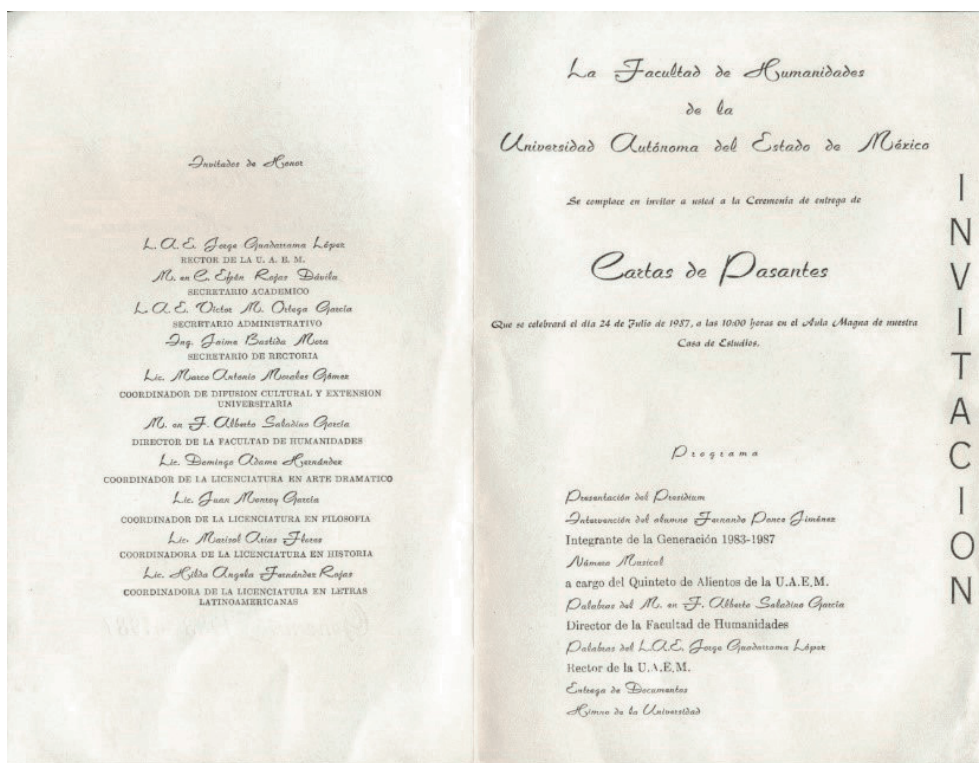 Invitados de Honor
L. A. E. Jorge Guadarrama López
RECTOR DE LA U. A. E. M.
M. en C. Efrén Rojas Dávila
SECRETARIO ACADEMICO
L. A. E. Víctor M. Ortega García
SECRETARIO ADMINISTRATIVO
Ing. Jaime Bastida Mera
SECRETARIO DE RECTORIA
Lic. Marco Antonio Morales Gómez
COORDINADOR DE DIFUSION CULTURAL Y EXTENSION
UNIVERSITARIA
M. en F. Alberto Saladino García
DIRECTOR DE LA FACULTAD DE HUMANIDADES
Lic. Domingo Adame Hernández
COORDINADOR DE LA LICENCIATURA EN ARTE DRAMATICO
Lic. Juan Monroy García
COORDINADOR DE LA LICENCIATURA EN FILOSOFIA
Lic. Marisol Arias Flores
COORDINADORA DE LA LICENCIATURA EN HISTORIA
Lic. Hilda Angela Fernández Rojas
COORDINADORA DE LA LICENCIATURA EN LETRAS
LATINOAMERICANAS
La Facultad de Humanidades
de la
Universidad Autónoma del Estado de México
Se complace en invitar a usted a la Ceremonia de entrega de
Cartas de Pasantes
Que se celebrará el día 24 de Julio de 1987, a las 10:00 horas en el Aula Magna de nuestra
Casa de Estudios.
Programa
Presentación del Presidium
Intervención del alumno Fernando Ponce Jiménez
Integrante de la Generación 1983-1987
Número Musical
a cargo del Quinteto de Alientos de la U.A.E.M.
Palabras del M. en F. Alberto Saladino García
Director de la Facultad de Humanidades
Palabras del L.A.E. Jorge Guadarrama López
Rector de la U.A.E.M.
Entrega de Documentos
Himno de la Universidad
INVITACION